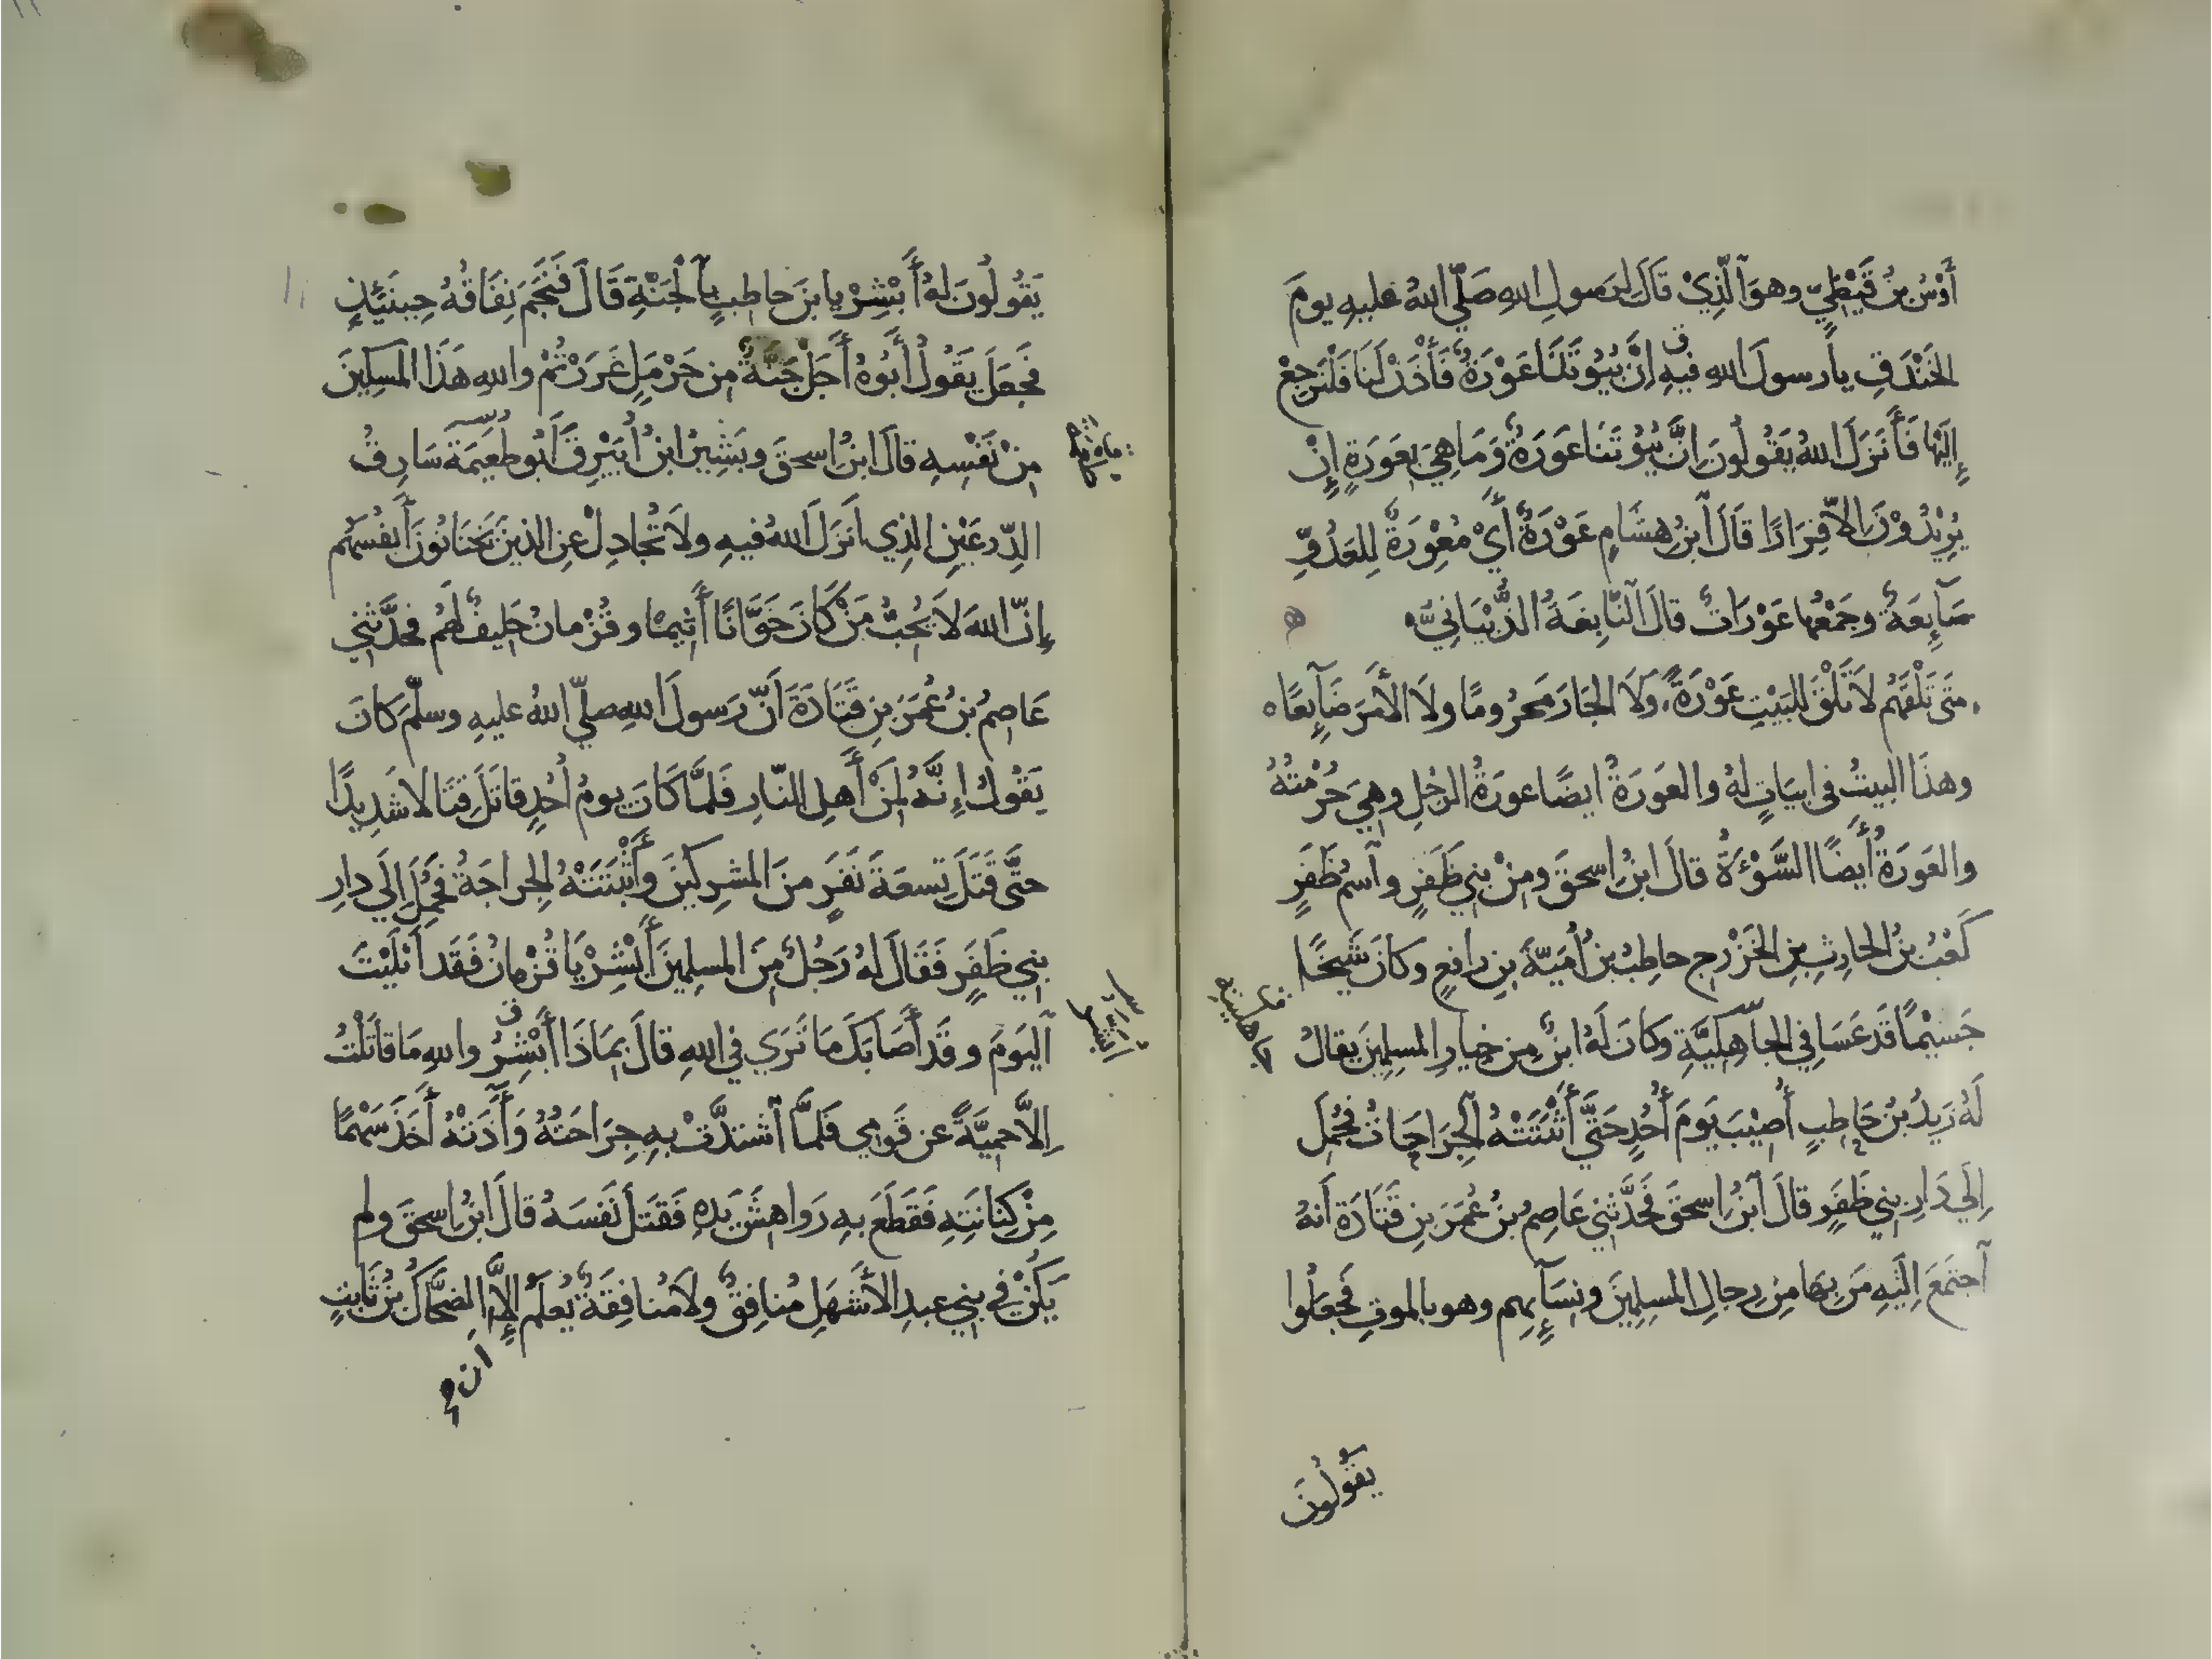 أَوْسُ بنُ قَيْظِيٍّ وهوَ ٱلَّذِيْ قَالَ لِرَسولِ اللهِ صَلّي اللهُ عليهِ يومَ
الخَنْدَقِ يا رسولَ اللهِ فيهِ إِنَّ بُيُوْتَنَا عَوْرَةٌ فَأْذَنْ لَنَا فَلْنَرجِعْ
إِلَيْهَا فَأَنزَلَ اللهُ يَقُولُونَ إِنَّ بُيُوْتَنَا عَوْرَةٌ وَمَا هِيَ بِعَورَةٍ إِنْ
يُرِيْدُوْنَ إِلاّ فِرَارًا قَالَ ٱبنُ هِشَامٍ عَوْرَةٌ أَيْ مُعْوِرَةٌ لِلعَدُوِّ
ضَآيِعَةٌ وجَمْعُها عَوْرَاتٌ قالَ ٱلنَّابِغَةُ الذُّبْيَانِيُّ ه
مَتَى تَلْقَهُم لاَ تَلْقَ لِلبَيْتِ عَوْرَةً ولاَ الجَارَ مَحرُومًا ولاَ الأَمرَ ضَآيِعًا ه
وهذَا البيتُ في ابياتٍ لهُ والعَورَةُ ايضًا عورَةُ الرجُلِ وهِيَ حُرْمَتُهُ
والعَورَةُ أَيضًا السَّوْءَةُ قالَ ابنُ اسحقَ ومِنْ بنِي ظَفَرٍ وٱسمُ ظَفَرٍ
كَعْبُ بنُ الحارِثِ بنِ الخَزْرجِ حاطِبُ بنُ أُمَيَّةَ بنِ رافِعٍ وكانَ شَيخًا
جَسيْمًا قَد عَسَا في الجاهِليَّةِ وَكانَ لَهُ ابنٌ مِن خِيارِ المسلِمِينَ يقالُ
جاهليته
لَهُ زَيدُ بنُ حَاطِبٍ أُصِيْبَ يَومَ أُحُدٍ حَتَّي أَثْبَتَتْهُ ٱلجِرَاحَاتُ فحُمِلَ
إِلَي دَارِ بنِي ظَفَرٍ قالَ ٱبنُ اسحقَ فحَدَّثَنِي عَاصِمُ بنُ عُمَرَ بنِ قَتَادَةَ أَنهُ
ٱجتَمَعَ اِلَيْهِ مَن بِهَا مِن رِجالِ المسلِمِينَ ونِسَآئِهِم وهو بالموتِ فَجَعلُوا
يَقُولُونَ
يَقُولُونَ لهُ أَبْشِرْ يا بنَ حاطِبٍ بِٱلْجَنَّةِ قَالَ فَنَجَمَ نِفَاقُهُ حِينَئِذٍ
فجعَلَ يَقُولُ أَبُوهُ أَجَلْ جَنَّةٌ مِن حَرْمَلٍ غَرَرْتُمْ واللهِ هَذَا المسكِينَ
مِنْ نَفْسِهِ قالَ ابنُ اسحقَ وبَشِيرُ ابنُ أُبَيْرِقَ أَبُو طُعَيْمَةَ سَارِقُ
الدِّرعَيْنِ الذِي انَزَلَ اللهُ فيهِ ولاَ تُجَادِلْ عنِ الذينَ يَختَانُونَ أَنفُسَهُم
إِنّ اللهَ لاَ يُحِبُّ مَنْ كَانَ خَوَّانًا أَثِيمًا وقُزْمانُ حَلِيفٌ لَهُم فحَدَّثَنِي
عَاصِمُ بنُ عُمَرَ بنِ قَتَادَةَ أَنّ رَسولَ اللهِ صلّي اللهُ عليهِ وسلّمَ كانَ
يَقُولُ اِنَّهُ لمِنْ أَهلِ النّارِ فَلمَّا كَانَ يومُ أُحُدٍ قاتَلَ قِتَالاً شَدِيدًا
حتَّى قَتَلَ تِسعَةَ نَفَرٍ منَ المشرِكينَ وأَثْبَتَتْهُ الجِراحَةُ فحُمِلَ إِلَي دارِ
بنِي ظَفَرٍ فَقَالَ لهُ رَجُلٌ مِنَ المسلِمِينَ أَبْشِرْ يَا قُزْمانُ فَقَد أَبْلَيْتَ
ٱليَومَ وقَد أَصَابَكَ مَا تَرَي في اللهِ قالَ بِمَاذَا أَبْشِرُ واللهِ مَا قاتَلْتُ
إِلاَّ حمِيَّةً عن قَومِي فَلمَّا ٱشتدَّتْ بهِ جِرَاحَتُهُ وَآَذَتْهُ أَخَذَ سَهْمًا
مِنْ كِنَانَتِهِ فَقَطَعَ بهِ رَواهِشَ يَدِهِ فَقَتلَ نَفسَهُ قالَ ابنُ اسحقَ ولم
يَكُنْ في بنِي عبدِ الأَشهَلِ مُنافِقٌ ولاَ مُنافِقَةٌ يُعلَمُ إِلاَّ الضحَّاكُ بنُ ثَابتٍ